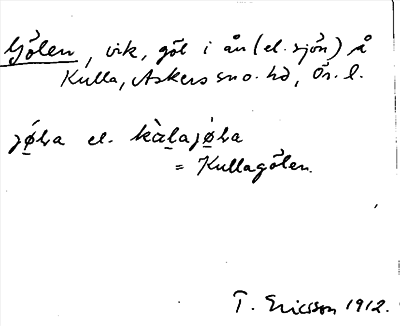 Gölen, vik, göl i ån (el. sjön) å
Kulla, Askers sn o. hd, Ör. l.
jø̀lva el. kàlajølva
= Kullagölen.
T. Ericsson 1912.